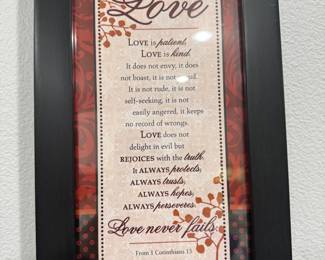 Love
LOVE is patient,
LOVE is kind.
It does not envy, it does
not boast, it is not proud.
It is not rude, it is not
self-seeking, it is not
easily angered, it keeps
no record of wrongs.
LOVE does not
delight in evil but
REJOICES with the truth.
It ALWAYS protects,
ALWAYS trusts,
ALWAYS hopes,
ALWAYS perseveres.
Love never fails.
From 1 Corinthians 13